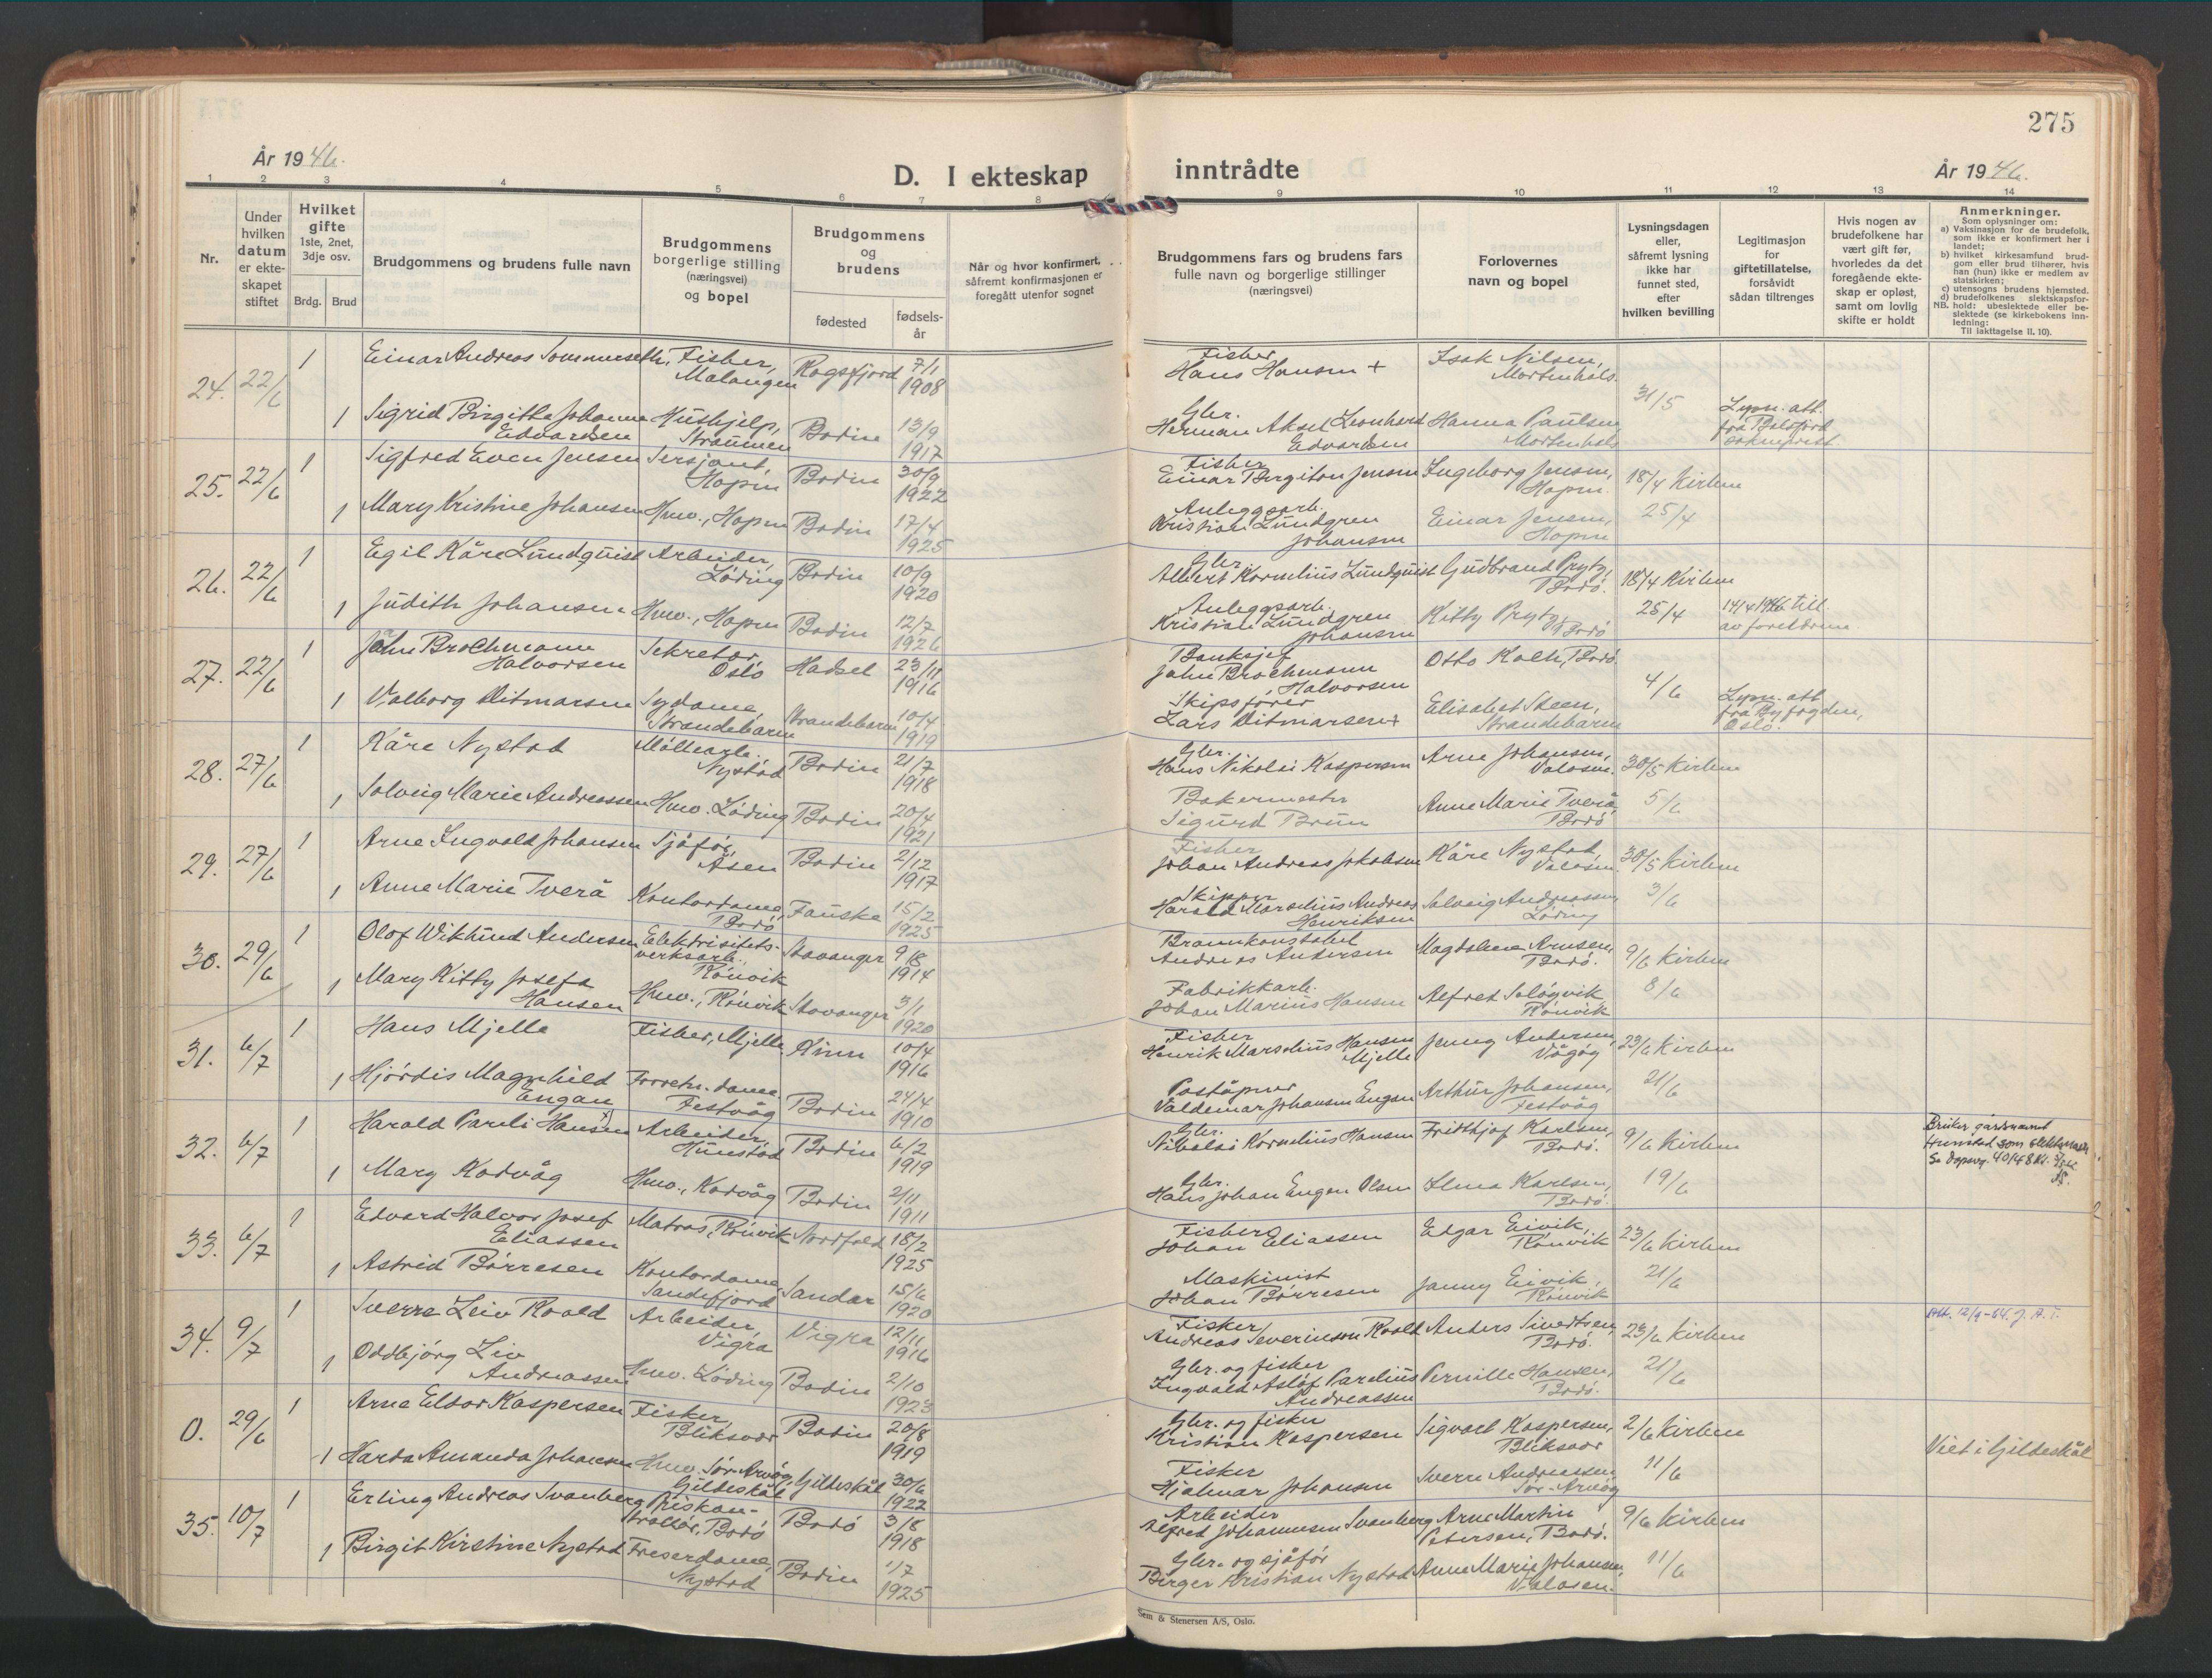 275
År 1946.
D. I ekteskap inntrådte
År 1946.
1 2 3 4 5 6 7 8 9 10 11 12 13 14
Nr.
Under hvilken datum er ekteskapet stiftet
Hvilket gifte 1ste, 2net, 3dje osv.
Brdg. Brud
Brudgommens og brudens fulle navn
Brudgommens borgerlige stilling (næringsvei) og bopel
Brudgommens og brudens
fødested
fødselsår
Når og hvor konfirmert, såfremt konfirmasjonen er foregått utenfor sognet
Brudgommens fars og brudens fars fulle navn og borgerlige stillinger (næringsvei)
Forlovernes navn og bopel
Lysningsdagen eller, såfremt lysning ikke har funnet sted, efter hvilken bevilling
Legitimasjon for giftetillatelse, forsåvidt sådan tiltrenges
Hvis nogen av brudefolkene har vært gift før, hvorledes da det foregående ekteskap er opløst, samt om lovlig skifte er holdt
Anmerkninger.
Som oplysninger om:
a) Vaksinasjon for de brudefolk, som ikke er konfirmert her i landet;
b) hvilket kirkesamfund brudgom eller brud tilhører, hvis han (hun) ikke er medlem av statskirken;
c) utensogns brudens hjemsted.
d) brudefolkenes slektskapsforhold: ubeslektede eller beslektede (se kirkebokens innledning:
NB.
Til iakttagelse II. 10).
24. 22/6 1 Einar Andreas Sommerseth, Fisker, Malangen Rogsfjord 7/1 1908 Fisker Hans Hansen + Isak Nilsen, Mortenhals 31/5
1 Sigrid Birgitte Johanne Edvardsen Hushjelp, Straumen Bodin 13/9 1917 Gbr. Herman Aksel Leonhard Edvardsen Hanna Paulsen Mortenhals Lysn. att. fra Balsfjord sokneprest
25. 22/6 1 Sigfred Even Jensen Sersjant, Hopen Bodin 30/9 1922 Fisker Einar Bergiton Jensen Ingeborg Jensen, Hopen. 18/4 Kirken
1 Mary Kristine Johansen Hmv., Hopen Bodin 17/4 1925 Anleggsarb. Kristian Lundgren Johansen Einar Jensen, Hopen 25/4
26. 22/6 1 Egil Kåre Lundquist Arbeider, Løding Bodin 10/9 1920 Gbr. Albert Kornelius Lundquist Gudbrand Prytz, Bodø. 18/4 Kirken
1 Judith Johansen Hmv., Hopen Bodin 12/7 1926 Anleggsarb. Kristian Lundgren Johansen Kitty Prytz, Bodø 25/4 14/4 1946 till. av foreldrene.
27. 22/6 1 John Brochmann Halvorsen Sekretær, Oslo Hadsel 23/11 1916 Banksjef John Brochmann Halvorsen Otto Koch, Bodø. 4/6
1 Valborg Ditmarsen Sydame, Strandebarm Strandebarm 10/4 1919 Skipsfører Lars Ditmarsen + Elisabet Steen, Strandebarm Lysn. att. fra Byfogden, Oslo.
28. 27/6 1 Kåre Nystad Møllearb. Nystad Bodin 21/7 1918 Gbr. Hans Nikolai Kaspersen Arne Johansen, Valosen. 30/5 Kirken
1 Solveig Marie Andreassen Hmv. Løding Bodin 20/4 1921 Bakermester Sigurd Brun Anne Marie Tverå, Bodø 5/6
29. 27/6 1 Arne Ingvald Johansen Sjåfør, Åsen Bodin 2/12 1917 Fisker Johan Andreas Jakobsen Kåre Nystad, Valosen. 30/5 Kirken
1 Anne Marie Tverå Kontordame, Bodø Fauske 15/2 1925 Skipper Harald Marselius Andreas Henriksen Solveig Andreassen, Løding 3/6
30. 29/6 1 Olof Wiklund Andersen Elektrisitetsverksarb., Rønvik Stavanger 9/8 1914 Brannkonstabel Andreas Andersen Magdalene Arnesen, Bodø. 9/6 Kirken
1 Mary Kitty Josefa Hansen Hmv., Rønvik Stavanger 3/1 1920 Fabrikkarb. Johan Marius Hansen Alfred Soløyvik Rønvik 8/6
31. 6/7 1 Hans Mjelle Fisker, Mjelle Kinn 10/4 1916 Fisker Henrik Marselius Hansen Mjelle Jenny Andersen, Vågøy 23/6 Kirken
1 Hjørdis Magnhild Engan Forretn.dame, Festvåg Bodin 24/4 1910 Poståpner Valdemar Johansen Engan Arthur Johansen, Festvåg 21/6
32. 6/7 1 Harald Pareli Hansen x) Arbeider, Hunstad Bodin 6/2 1919 Gbr. Nikolai Kornelius Hansen Fridthjof Karlsen, Bodø. 9/6 Kirken Bruker gårdsnavnet Hunstad som slektsnavn Se dopsreg. 40/48 Kl.
1 Mary Kodvåg Hmv., Kodvåg Bodin 2/11 1911 Gbr. Hans Johan Eugen Olsen Ilma Karlsen, Bodø. 19/6
33. 6/7 1 Edvard Halvor Josef Eliassen Matros, Rønvik Nordfold 18/2 1925 Fisker Johan Eliassen Edgar Eivik, Rønvik 23/6 Kirken
1 Astrid Børresen Kontordame Sandefjord Sandar 15/6 1920 Maskinist Johan Børresen Janny Eivik, Rønvik 21/6
34. 9/7 1 Sverre Leiv Roald Arbeider, Vigra Vigra 12/11 1916 Fisker Andreas Severinson Roald Anders Sivertsen, Bodø. 23/6 Kirken Att. 12/9-64. J. A. T.
1 Oddbjørg Liv Andreassen Hmv. Løding Bodin 2/10 1923 Gbr. og fisker Ingvald Asløf Parelius Andreassen Pernille Hansen, Bodø. 21/6
0. 29/6 1 Arne Eldor Kaspersen Fisker, Bliksvær Bodin 20/8 1919 Gbr. og fisker Kristian Kaspersen Sigvart Kaspersen, Bliksvær 2/6 Kirken Viet i Gildeskål
1 Harda Amanda Johansen Hmv. Sør-Arnøy, Gildeskål Gildeskål 30/6 1922 Fisker Hjalmar Johansen Sverre Andreassen Sør-Arnøy 11/6
35. 10/7 1 Erling Andreas Svanberg Priskontrollør, Bodø Bodø 3/8 1918 Arbeider Alfred Johannesen Svanberg Arne Martin Petersen, Bodø. 9/6 Kirken
1 Birgit Kirstine Nystad Freserdame, Nystad Bodin 1/7 1925 Gbr. og sjåfør Birger Kristian Nystad Anne Marie Johansen, Valosen. 11/6
Sem & Stenersen A/S, Oslo.